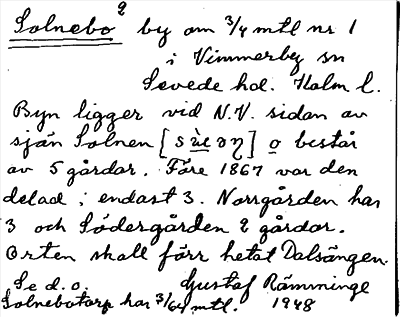 Solnebo 2 by om 3/4 mtl nr 1
i Vimmerby sn
Sevede hd. Kalm l.
Byn ligger vid N.V. sidan av
sjön Solnen o består
av 5 gårdar. Före 1867 var den
delad i endast 3. Norrgården har
3 och Södergården 2 gårdar.
Orten skall förr hetat Dalsängen.
Se d.o. Gustaf Rämminge
Solnebotorp har 3/64 mtl. 1948